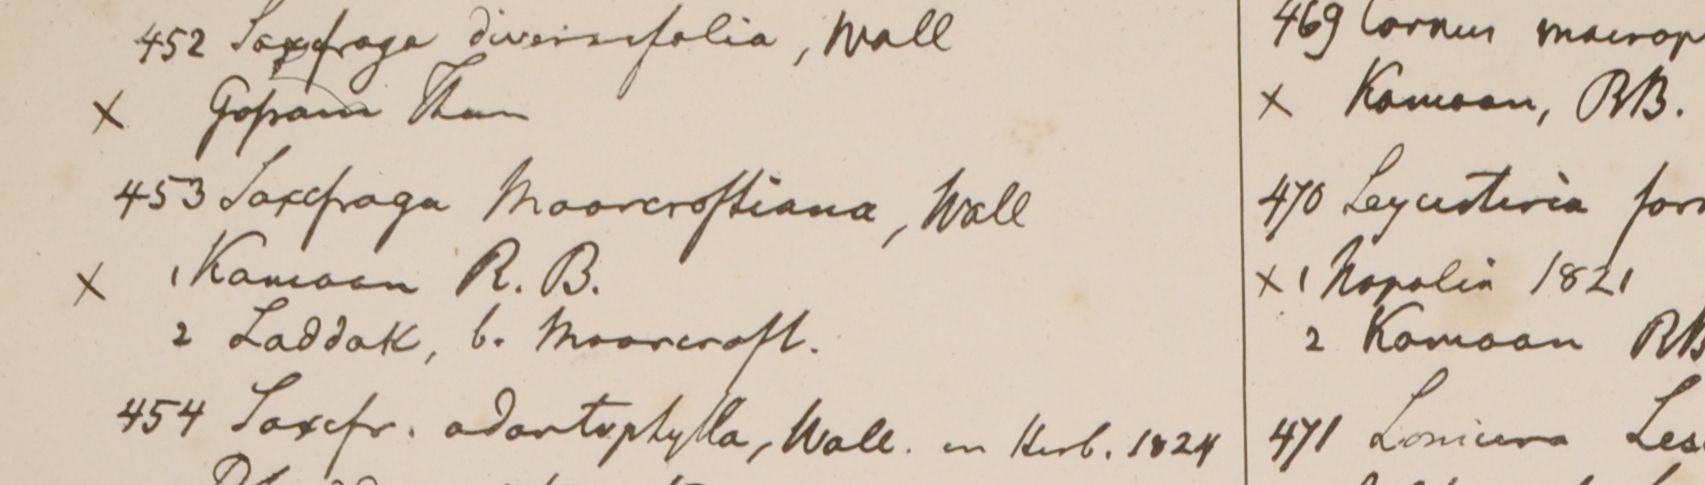 452 Saxifraga diversifolia, Wall
x Gossain Than
453 Saxifraga Moorcroftiana, Wall
x 1 Kamoan R. B.
2 Laddak, b. Moorcroft.
454 Saxifr. odontophylla, Wall. in Herb. 1824
469 Cornus macrop
x Kamoan, RB.
470 Leycesteria for
x 1 Napalia 1821
2 Kamoan RB
471 Lonicera Les